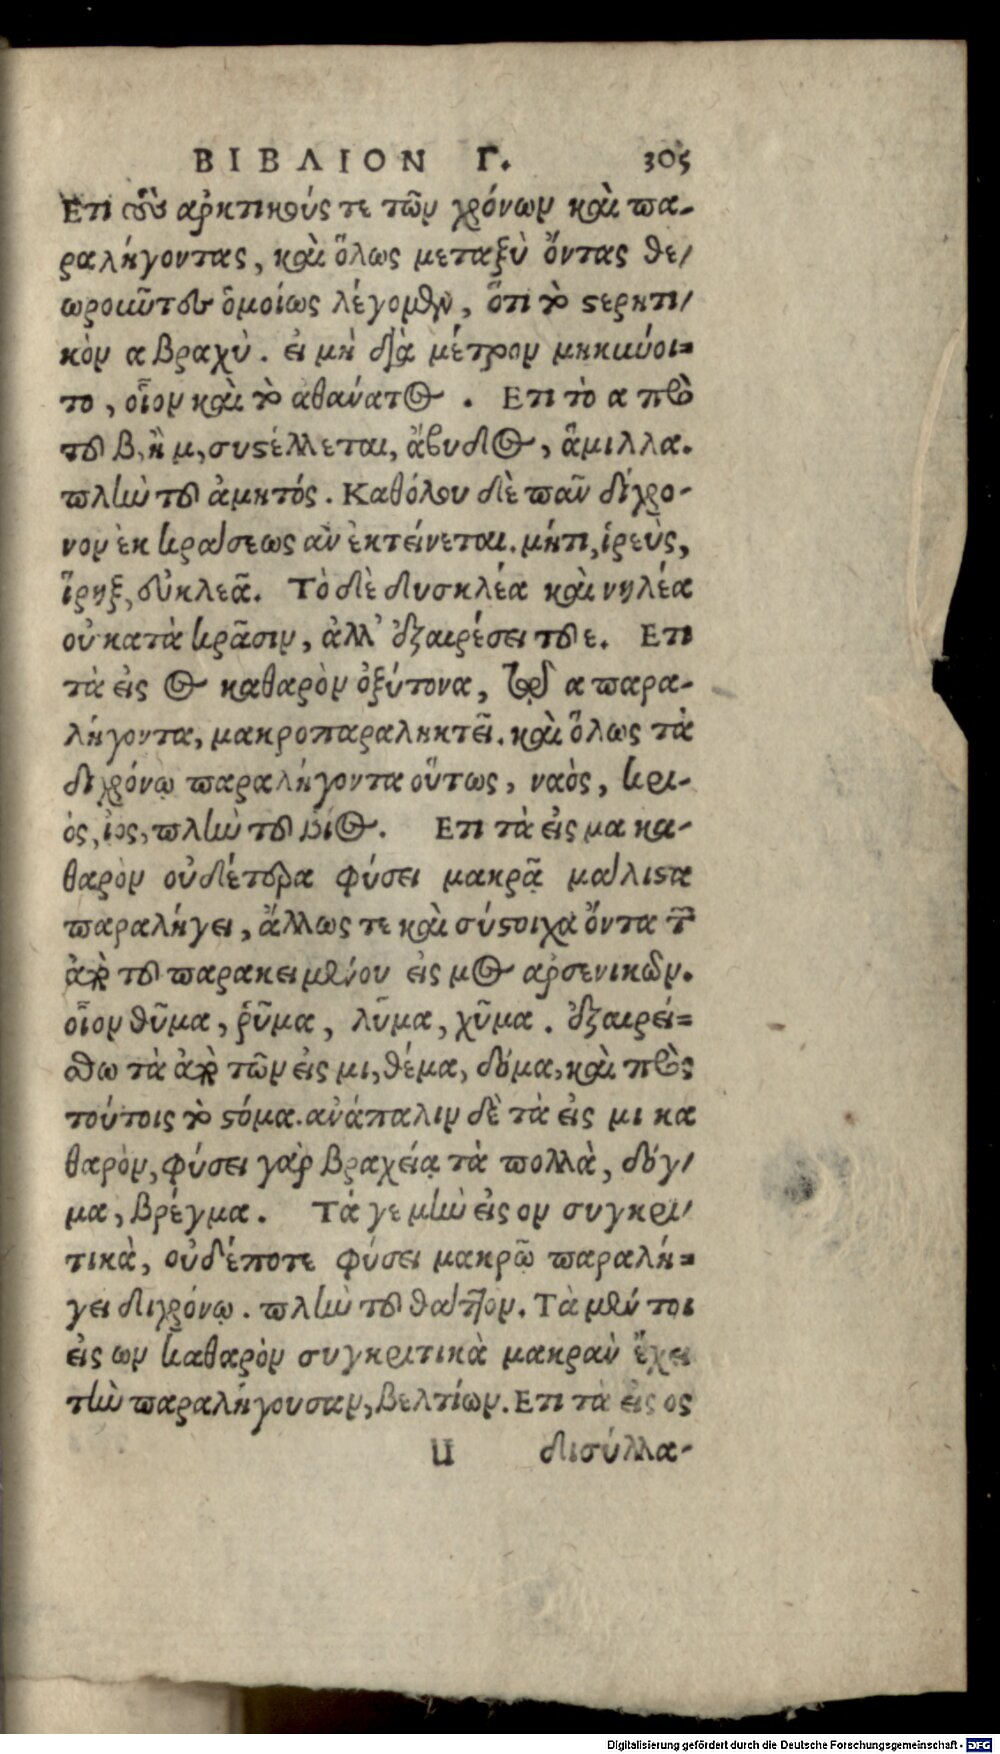 ΒΙΒΛΙΟΝ Γ. 305
Ετι τοὺς ἀρκτικούς τε τῶν χρόνων καὶ πα-
ραλήγοντας, καὶ ὅλως μεταξὺ ὄντας θε-
ωροῦντες ὁμοίως λέγομεν, ὅτι τὸ στερητι-
κὸν α βραχύ. εἰ μὴ διὰ μέτρον μηκύνοι-
το, οἷον καὶ τὸ ἀθάνατος. Ετι τὸ α πρὸ
τοῦ β, ἢ μ, συστέλλεται, ἄβυδος, ἅμιλλα.
πλὴν τοῦ ἀμητός. Καθόλου δὲ πᾶν δίχρο-
νον ἐκ κράσεως ἂν ἐκτείνεται. μήτι, ἱρεὺς,
ἵρηξ, εὐκλεᾶ. Τὸ δὲ δυσκλέα καὶ νηλέα
οὐ κατὰ κρᾶσιν, ἀλλ' ἐξαιρέσει τοῦ ε. Ετι
τὰ εἰς ος καθαρὸν ὀξύτονα, τῷ α παρα-
λήγοντα, μακροπαραληκτεῖ. καὶ ὅλως τὰ
διχρόνῳ παραλήγοντα οὕτως, ναὸς, κρι-
ὸς, ἰὸς, πλὴν τοῦ βίος. Ετι τὰ εἰς μα κα-
θαρὸν οὐδέτερα φύσει μακρᾷ μάλιστα
παραλήγει, ἄλλως τε καὶ σύστοιχα ὄντα τῶν
ἀπὸ τοῦ παρακειμένου εἰς μος ἀρσενικῶν.
οἷον θῦμα, ῥῦμα, λῦμα, χῦμα. ἐξαιρεί-
σθω τὰ ἀπὸ τῶν εἰς μι, θέμα, δόμα, καὶ πρὸς
τούτοις τὸ στόμα. ἀνάπαλιν δὲ τὰ εἰς μι κα
θαρὸν, φύσει γὰρ βραχείᾳ τὰ πολλὰ, δόγ-
μα, βρέγμα. Τά γε μὴν εἰς ον συγκρι-
τικὰ, οὐδέποτε φύσει μακρῷ παραλή-
γει διχρόνῳ. πλὴν τοῦ θάττον. Τὰ μέν τοι
εἰς ων καθαρὸν συγκριτικὰ μακρὰν ἔχει
τὴν παραλήγουσαν, βελτίων. Ετι τὰ εἰς ος
U δισύλλα-
Digitalisierung gefördert durch die Deutsche Forschungsgemeinschaft - DFG